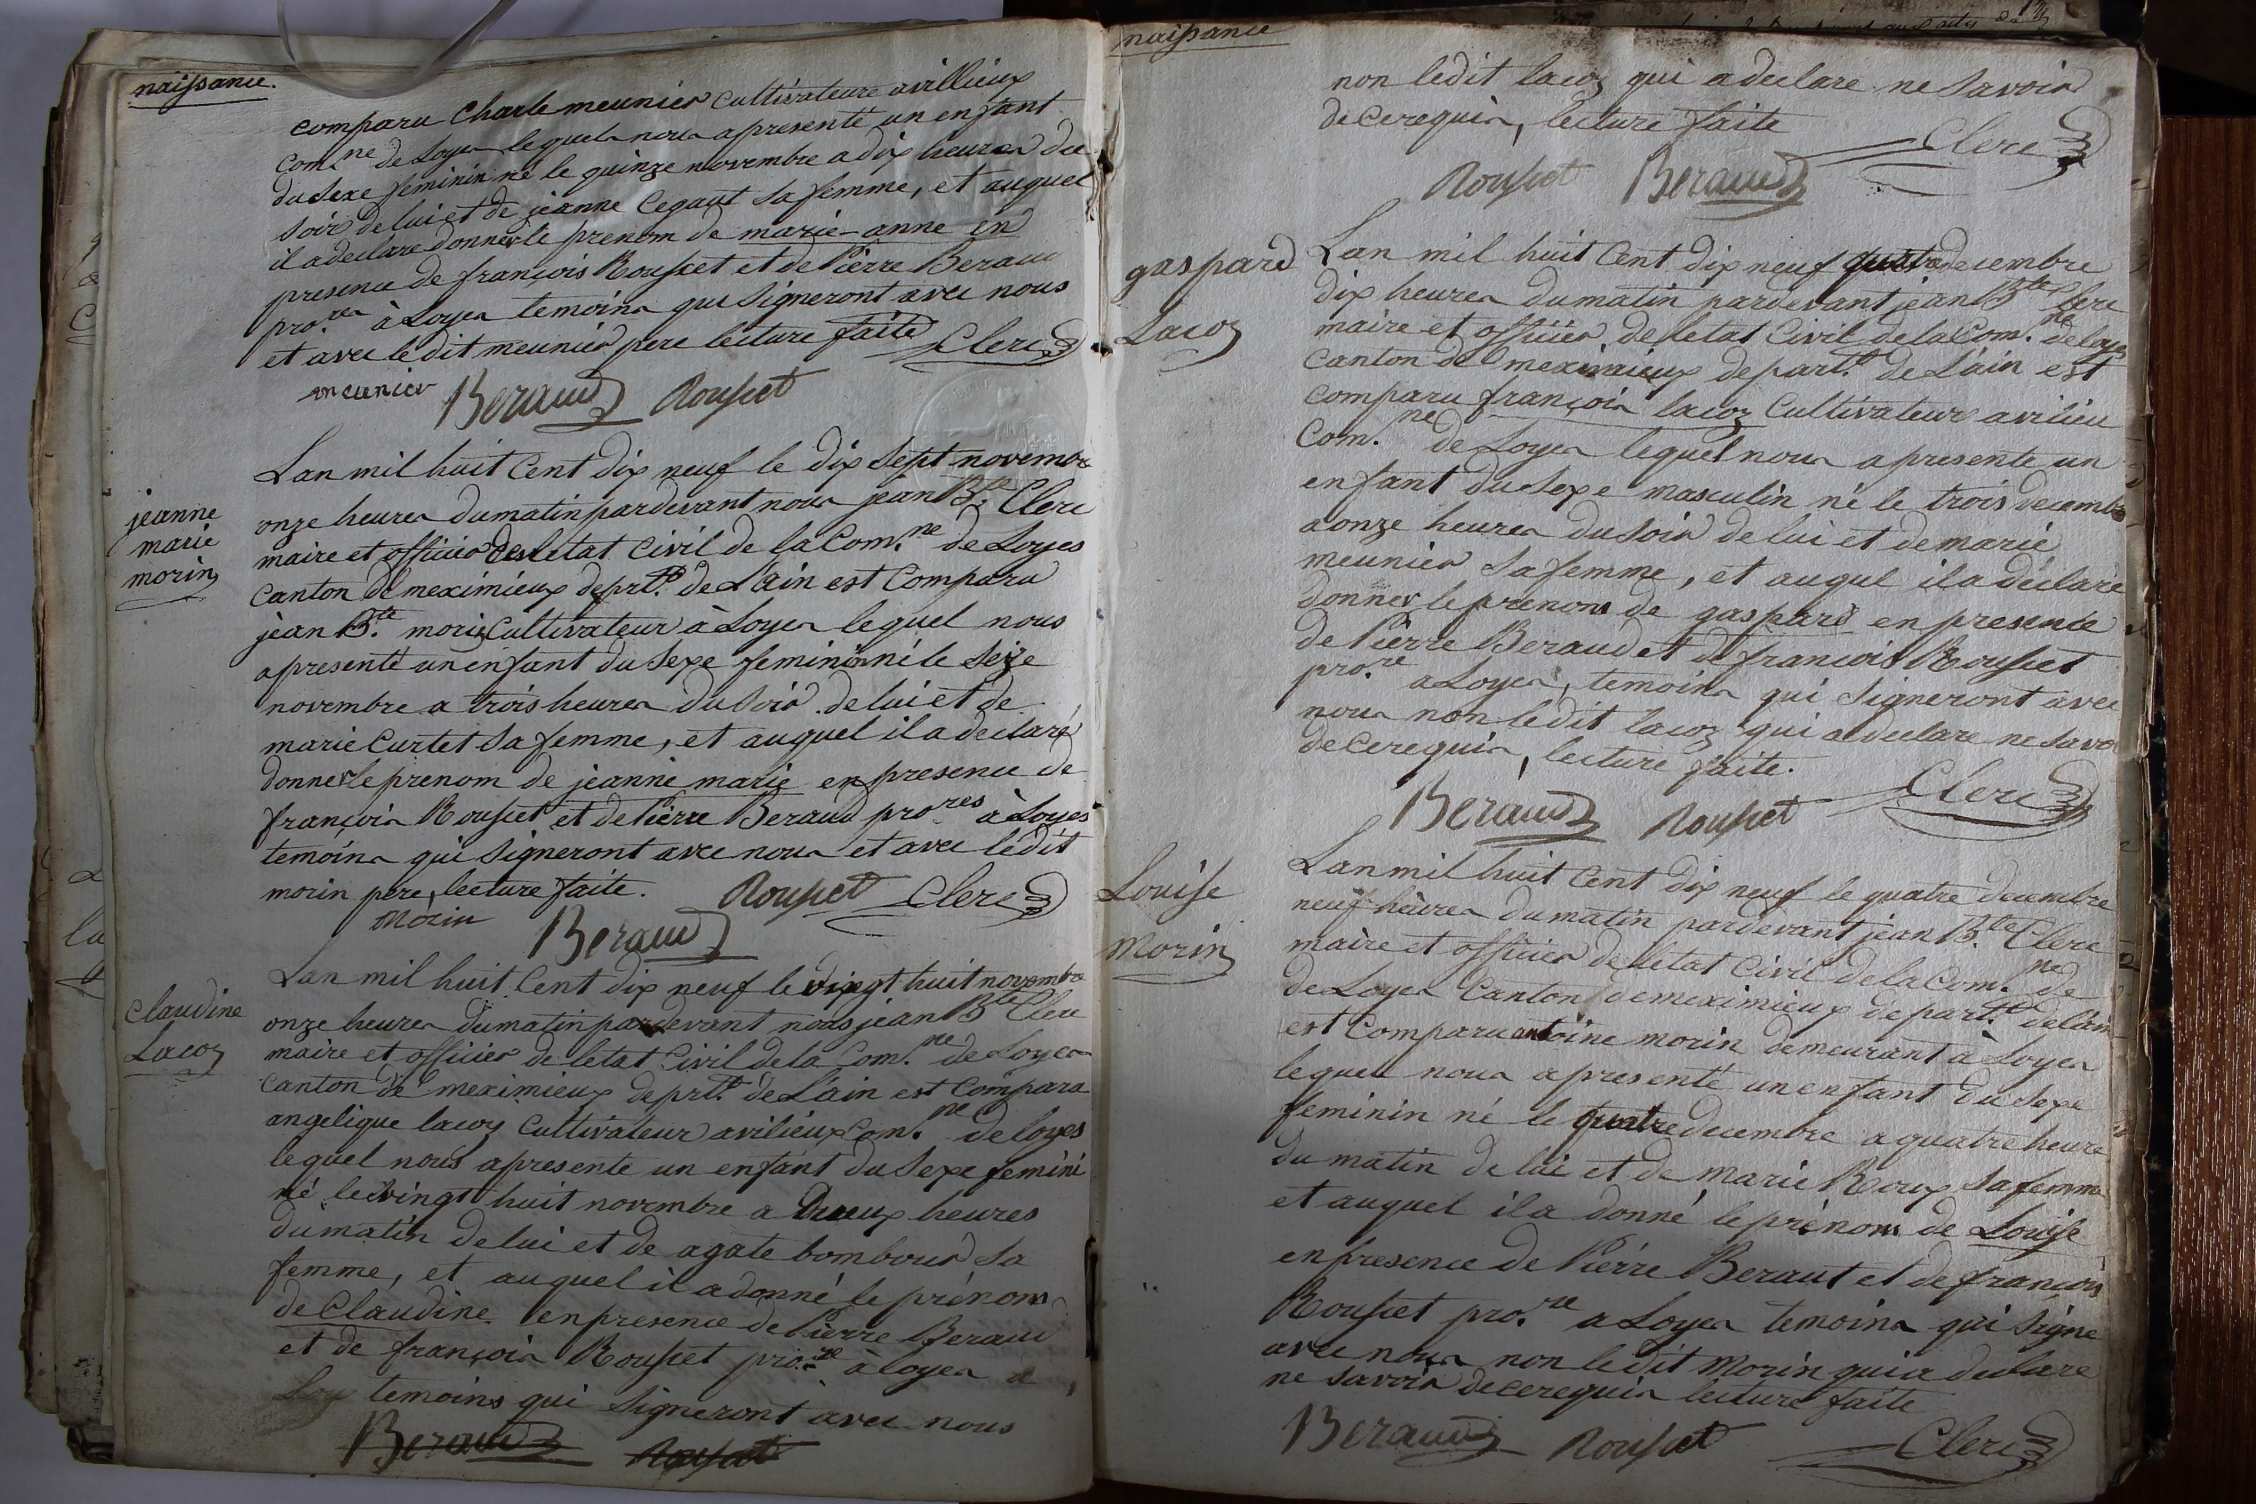 naissance.
comparu Charle meunier Cultivateure avillieux
Com.ne de Loyes lequel nous a presenté un enfant
du sexe feminin né le quinze novembre a dix heures du
soir de lui et de jeanne Cegaut sa femme, et auquel
il a declare donner le prenom de marie-anne en
presence de françois Rousset et de Pierre Beraud
pro.res à Loyes temoins qui signeront avec nous
et avec ledit meunier pere lecture faite Clerc
meunier Beraud Rousset
jeanne
marie
morin
Lan mil huit Cent dix neuf le dix sept novembre
onze heures du matin pardevant nous jean B.te Clerc
maire et officier de letat Civil de la Com.ne de Loyes
Canton de meximieux deprt.t de L'ain est Comparu
jean B.te morin Cultivateur à Loyes lequel nous
a presenté un enfant du sexe feminin né le seize
novembre a trois heures du soir de lui et de
marie Curtet sa femme, et auquel il a declaré
donner le prenom de jeanne marie en presence de
françois Rousset et de Pierre Beraud pro.res à Loyes
temoins qui signeront avec nous et avec ledit
morin pere, lecture faite. Rousset Clerc
Morin Beraud
Claudine
Lacoz
Lan mil huit Cent dix neuf le vingt huit novembre
onze heures du matin pardevant nous jean B.te Clerc
maire et officier de letat Civil de la Com.ne de Loyes
Canton de meximieux deprt.t de L'ain est Comparu
angelique lacoz Cultivateur avilieux Com.ne de loyes
lequel nous a presente un enfant du sexe femini
né le vingt huit novembre a deux heures
du matin de lui et de agate bombour sa
femme, et auquel il a donné le prénom
de Claudine en presence de Pierre Beraud
et de françois Rousset pro.re à loyes
Loy temoins qui signeront avec nous
Beraud Rousset
naissance
non ledit lacoz qui a declare ne savoir
de ce requis, lecture faite
Clerc
Rousset Beraud
gaspard
Lacoz
Lan mil huit Cent dix neuf quatre decembre
dix heures du matin pardevant jean B.te Clerc
maire et officier de letat Civil de la Com.ne de loyes
Canton de meximieux depart.t de L'ain est
comparu françois lacoz Cultivateur avilieu
Com.ne de Loyes lequel nous a presente un
enfant du sexe masculin né le trois decembre
a onze heures du soir de lui et de marie
meunier sa femme, et auquel il a déclare
donner le prenom de gaspard en presence
de Pierre Beraud et de françois Rousset
pro.re a Loyes, temoins qui signeront avec
nous non ledit lacoz qui a declare ne savoir
de ce requis, lecture faite.
Clerc
Beraud Rousset
Louise
Morin
Lan mil huit Cent dix neuf le quatre decembre
neuf heures du matin pardevant jean B.te Clerc
maire et officier de letat Civil de la Com.ne de
de Loyes Canton de meximieux depart.t de lain
est Comparu antoine morin demeurant à Loyes
lequel nous a presenté un enfant du sexe
feminin né le quatre decembre a quatre heure
du matin de lui et de marie Roux sa femme
et auquel il a donné le prénom de Louise
en presence de Pierre Beraut et de françois
Rousset pro.re a Loyes temoins qui signe
avec nous non ledit Morin qui a declare
ne savoir de ce requis lecture faite
Beraud Rousset Clerc